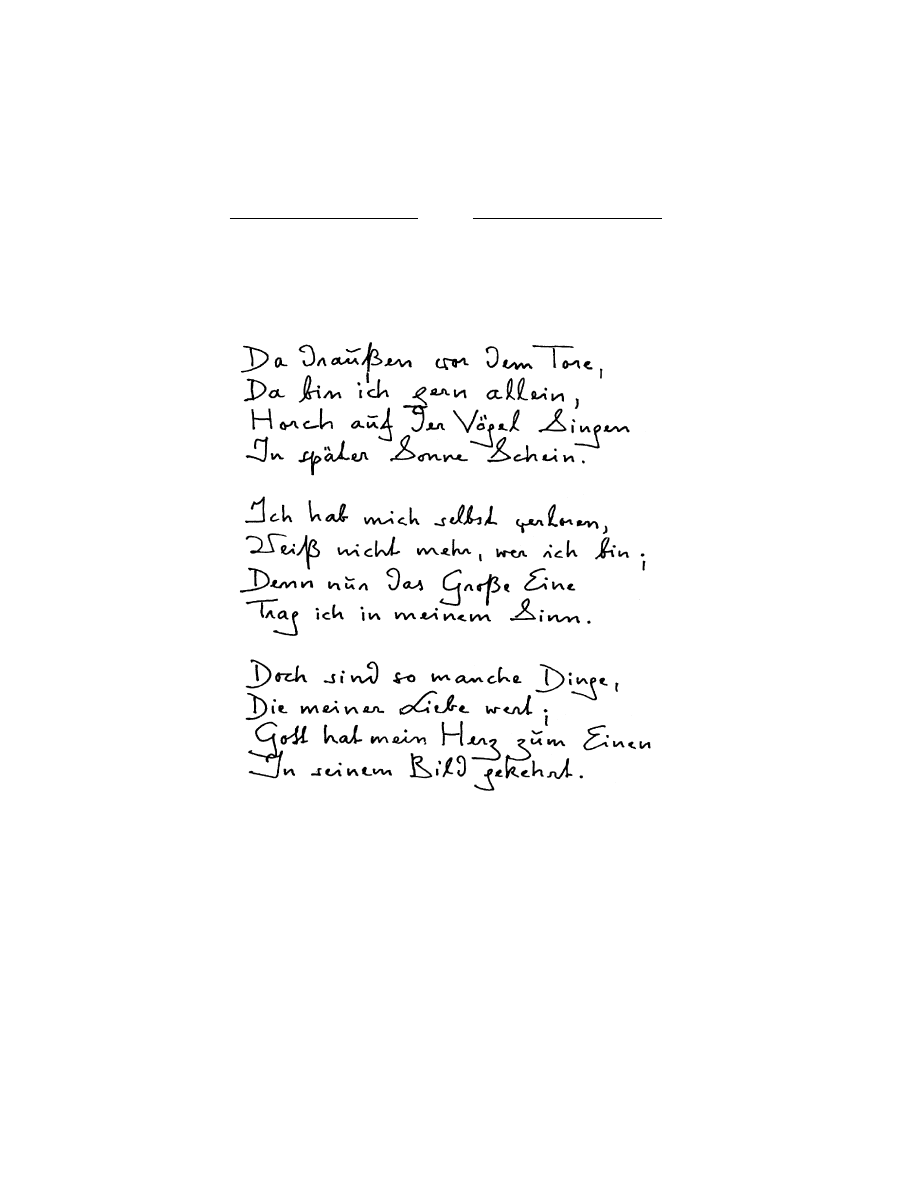 Da draußen vor dem Tore,
Da bin ich gern allein,
Horch auf der Vögel Singen
In später Sonne Schein.
Ich hab mich selbst verloren,
Weiß nicht mehr, wer ich bin;
Denn nur das Große Eine
Trag ich in meinem Sinn.
Doch sind so manche Dinge,
Die meiner Liebe wert;
Gott hat mein Herz zum Einen
In seinem Bild gekehrt.